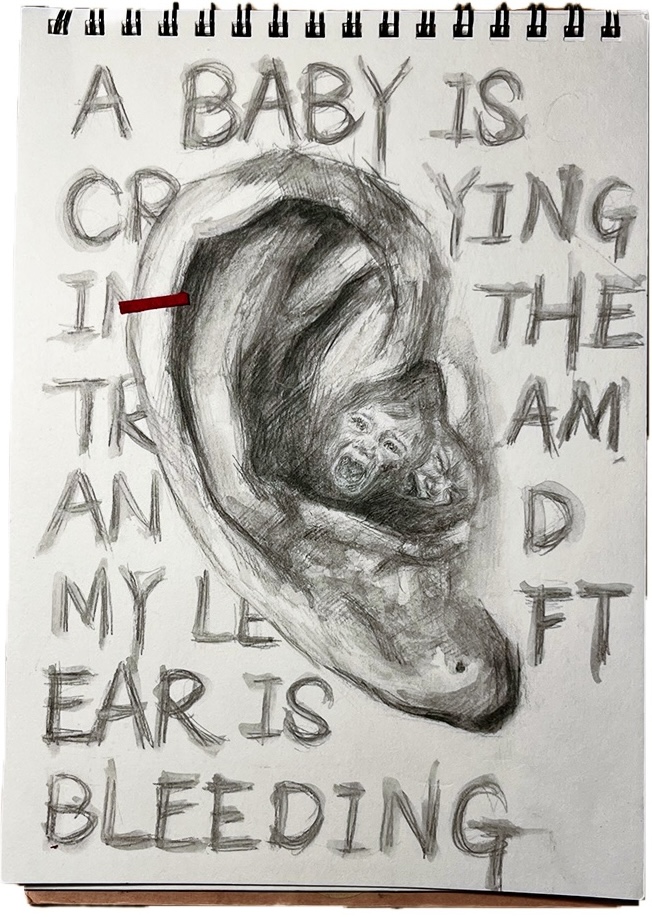 A BABY IS
CRYING
IN THE
TRAM
AND
MY LEFT
EAR IS
BLEEDING